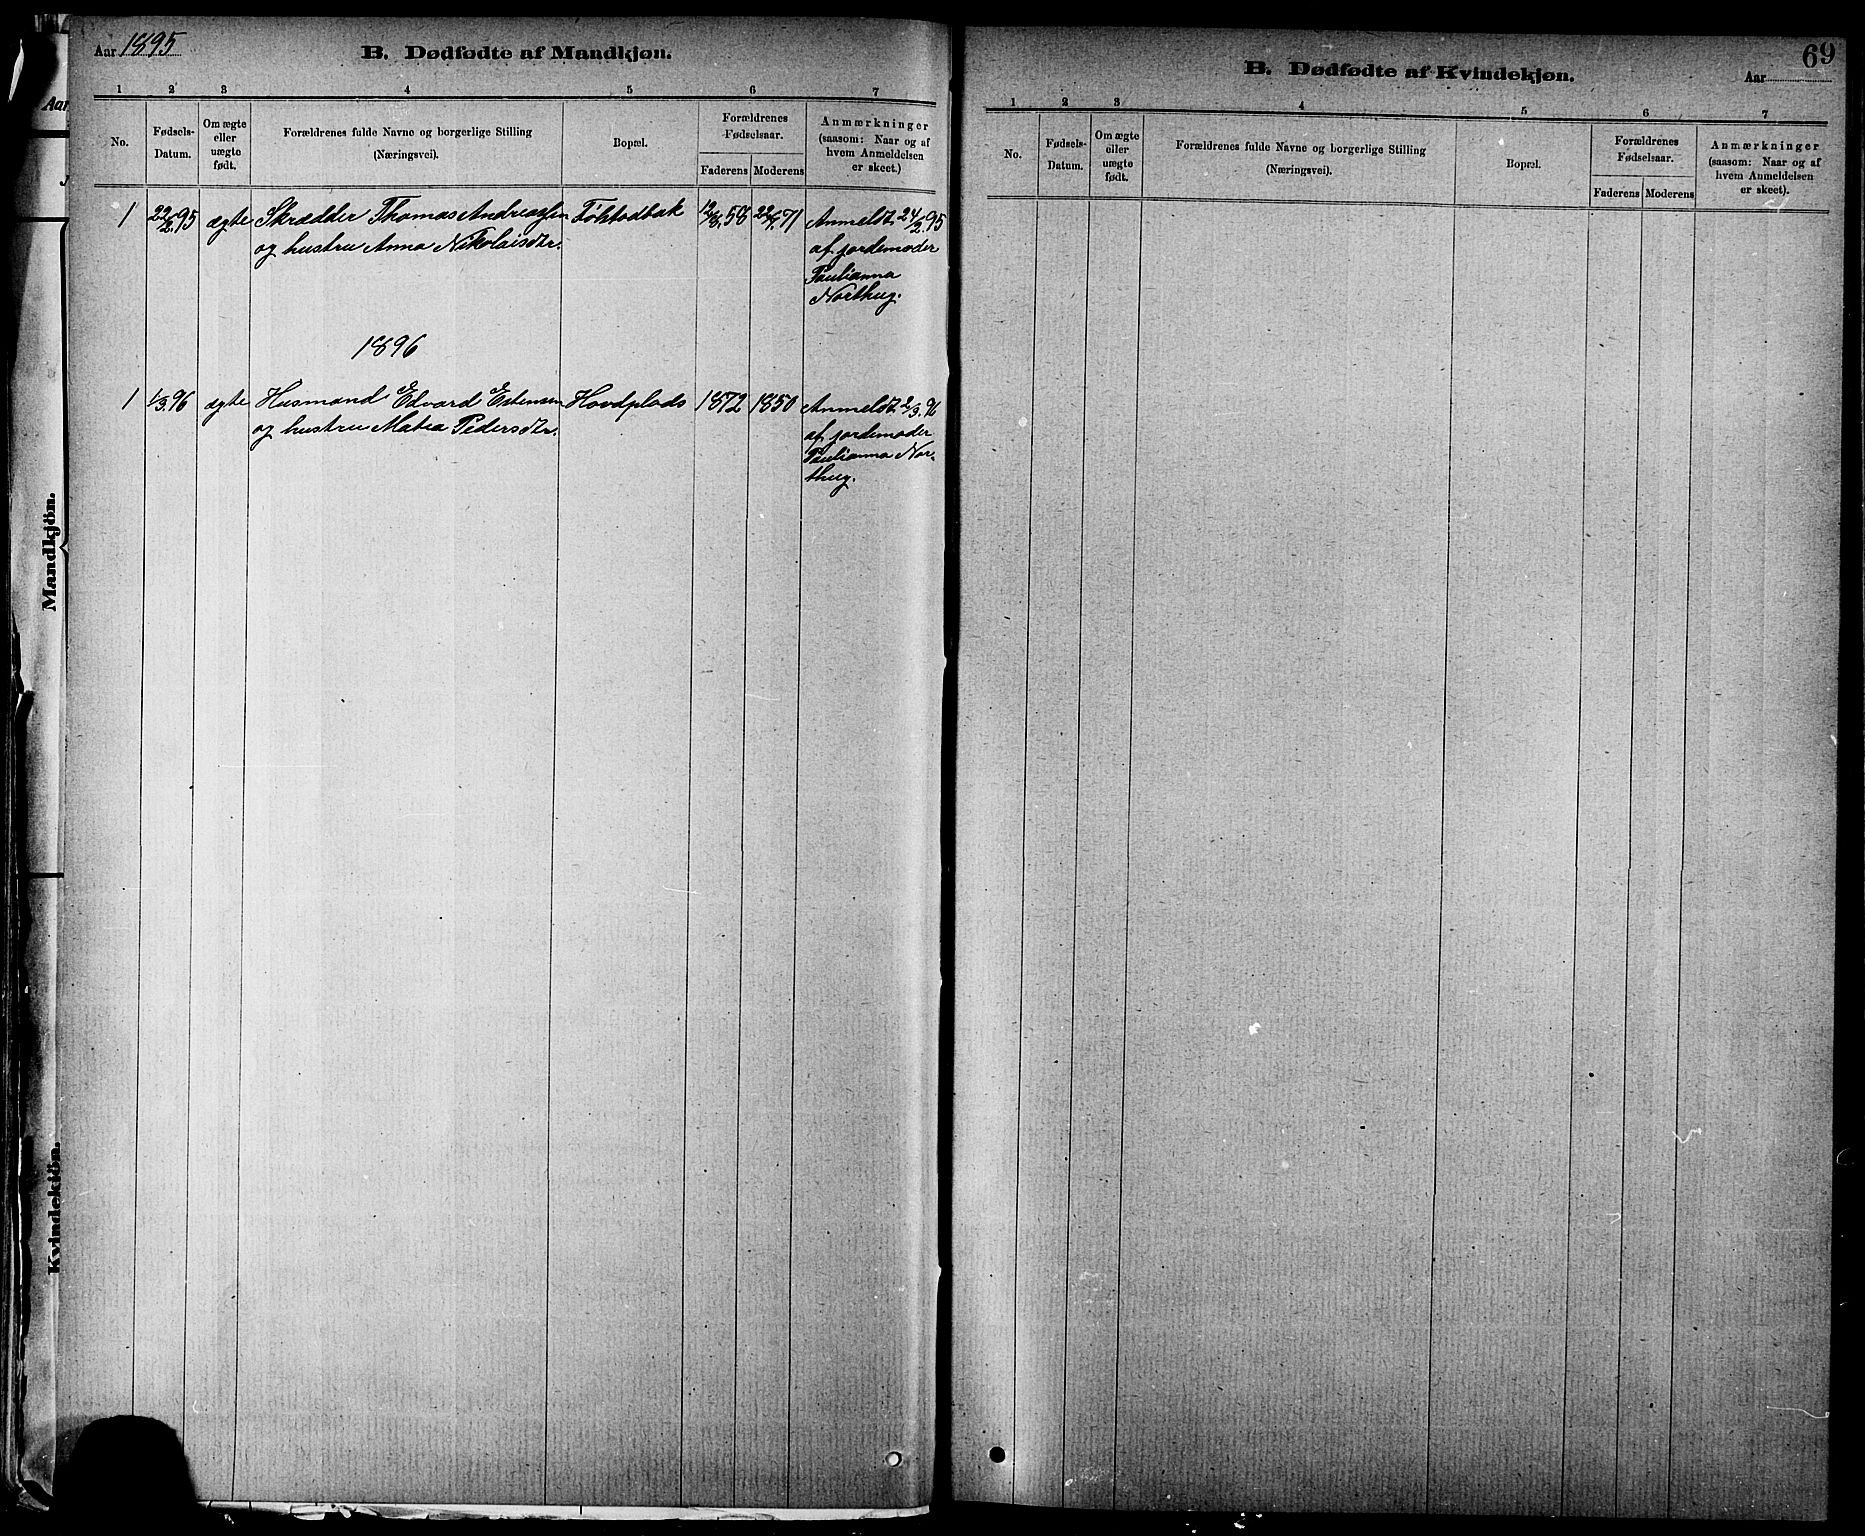 Aar 1895
B. Dødfødte af Mandkjøn.
1 2 3 4 5 6 7
No.
Fødsels-
Datum.
Om ægte
eller
uægte
født.
Forældrenes fulde Navne og borgerlige Stilling
(Næringsvei).
Bopæl.
Forældrenes
Fødselsaar.
Faderens Moderens
Anmærkninger
(saasom: Naar og af
hvem Anmeldelsen
er skeet.)
1 22/2.95 ægte Skrædder Thomas Andreassen 12/8.58 71 Anmeldt 24/2.95
og hustru Anna Nikolaisdtr. af jordemoder
Paulianna
Northug.
1896
1 1/3.96 ægte Husmand Edvard Estensen Hovdplads 1872 1850 Anmeldt 2/3.96
og hustru Matea Pedersdtr. af jordemoder
Paulianna Nor-
thug.
Aar
Mandkjön.
Kvindekjön.
69
B. Dødfødte af Kvindekjøn.
Aar
1 2 3 4 5 6 7
No.
Fødsels-
Datum.
Om ægte
eller
uægte
født.
Forældrenes fulde Navne og borgerlige Stilling
(Næringsvei).
Bopæl.
Forældrenes
Fødselsaar.
Faderens Moderens
Anmærkninger
(saasom: Naar og af
hvem Anmeldelsen
er skeet).